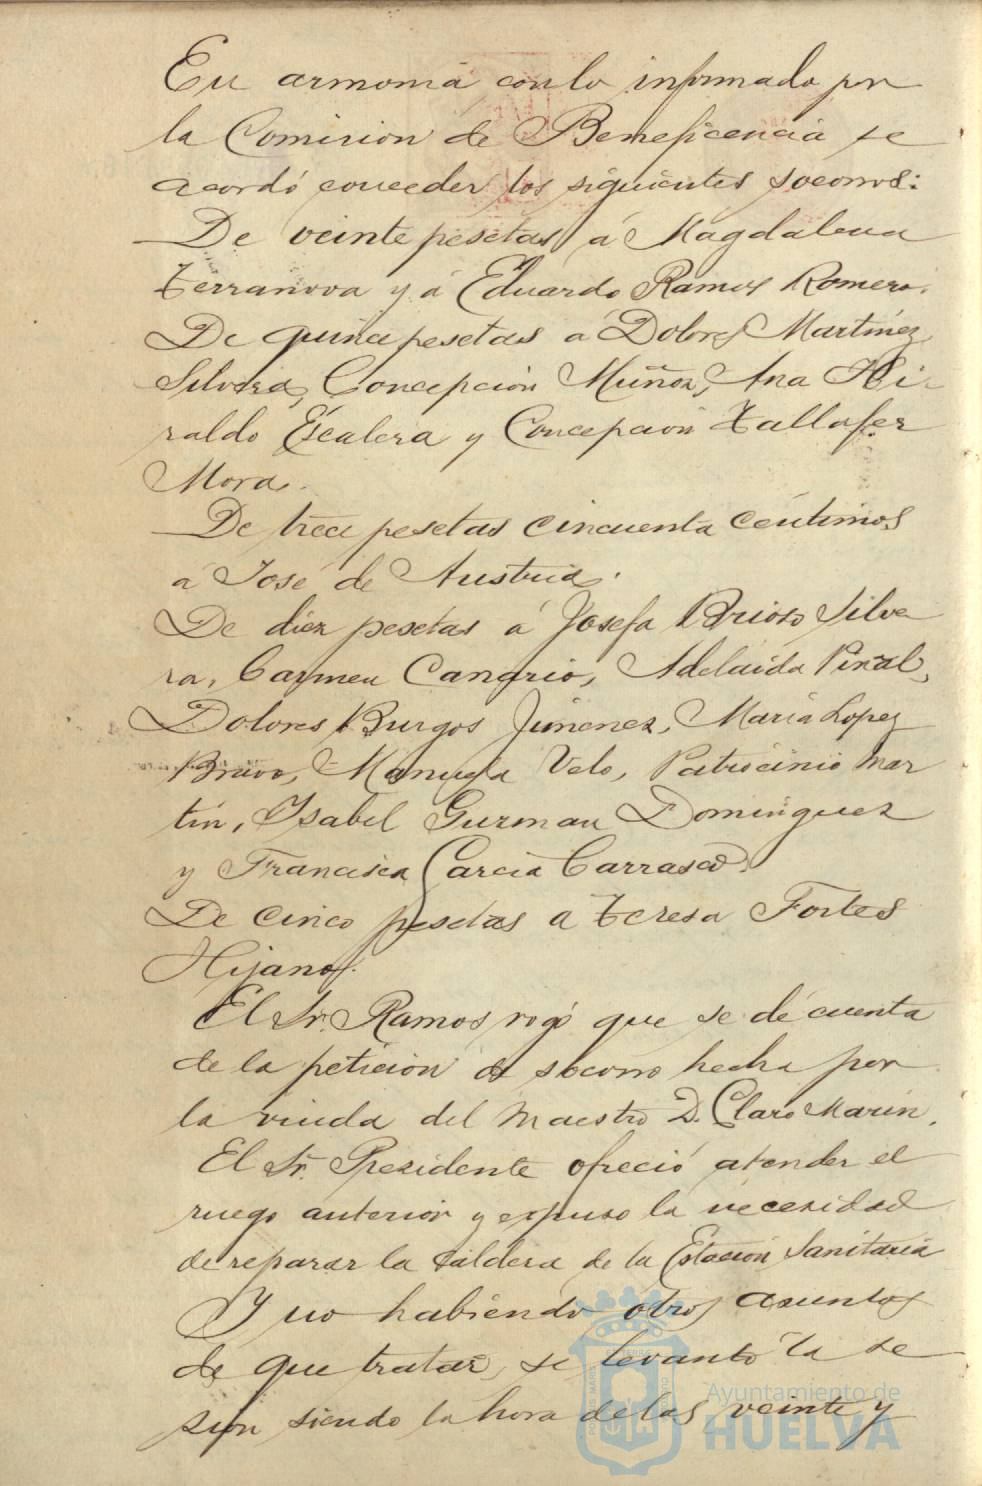 En armonía con lo informado por
la Comision de Beneficencia se
acordó conceder los siguientes socorros:
De veinte pesetas á Magdalena
Terranova y á Eduardo Ramos Romero.
De quince pesetas a Dolores Martínez
Silvera, Concepción Muñoz, Ana Hi-
raldo Escalera y Concepción Tallafer
Mora.
De trece pesetas cincuenta céntimos
á José de Austria.
De diez pesetas á Josefa Brioso Silve
ra, Carmen Canario, Adelaida Piñal,
Dolores Burgos Jiménez, María Lopez
Bravo, Manuela Velo, Patrocinio Mar
tín, Isabel Guzman Domínguez
y Francisca García Carrasco.
De cinco pesetas a Teresa Fortes
Hijano.
El Sr. Ramos rogó que se dé cuenta
de la petición de socorro hecha por
la viuda del Maestro D. Claro Marín.
El Sr. Presidente ofreció atender el
ruego anterior y expuso la necesidad
de reparar la caldera de la Estación Sanitaria
Y no habiendo otros asuntos
de que tratar, se levantó la se
sión siendo la hora de las veinte y
Ayuntamiento de
HUELVA